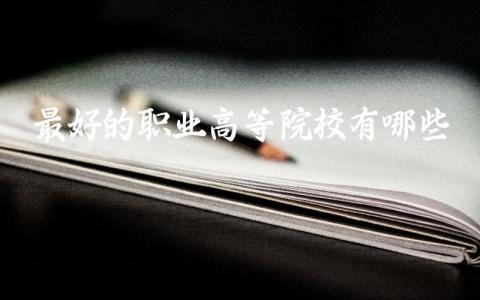 最好的职业高等院校有哪些